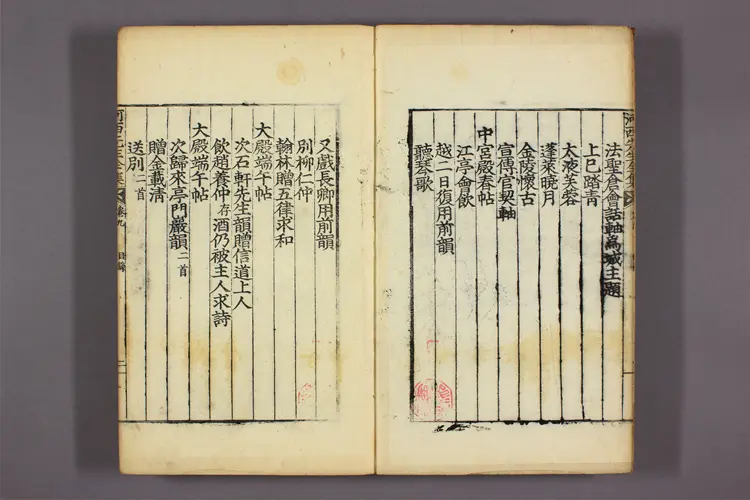 法聖倉會話軸為城主題
上巳踏青
太液芙蓉
蓬萊曉月
金陵懷古
宣傳官契軸
中宮殿春帖
江亭會飲
越二日復用前韻
聽琴歌
又戲長卿用前韻
別柳仁仲
翰林贈五律求和
大殿端午帖
次石軒先生韻贈信道上人
飲趙養仲存酒仍被主人求詩
大殿端午帖
次歸來亭門巖韻二首
贈金載清
送別二首
卷九 目錄 二